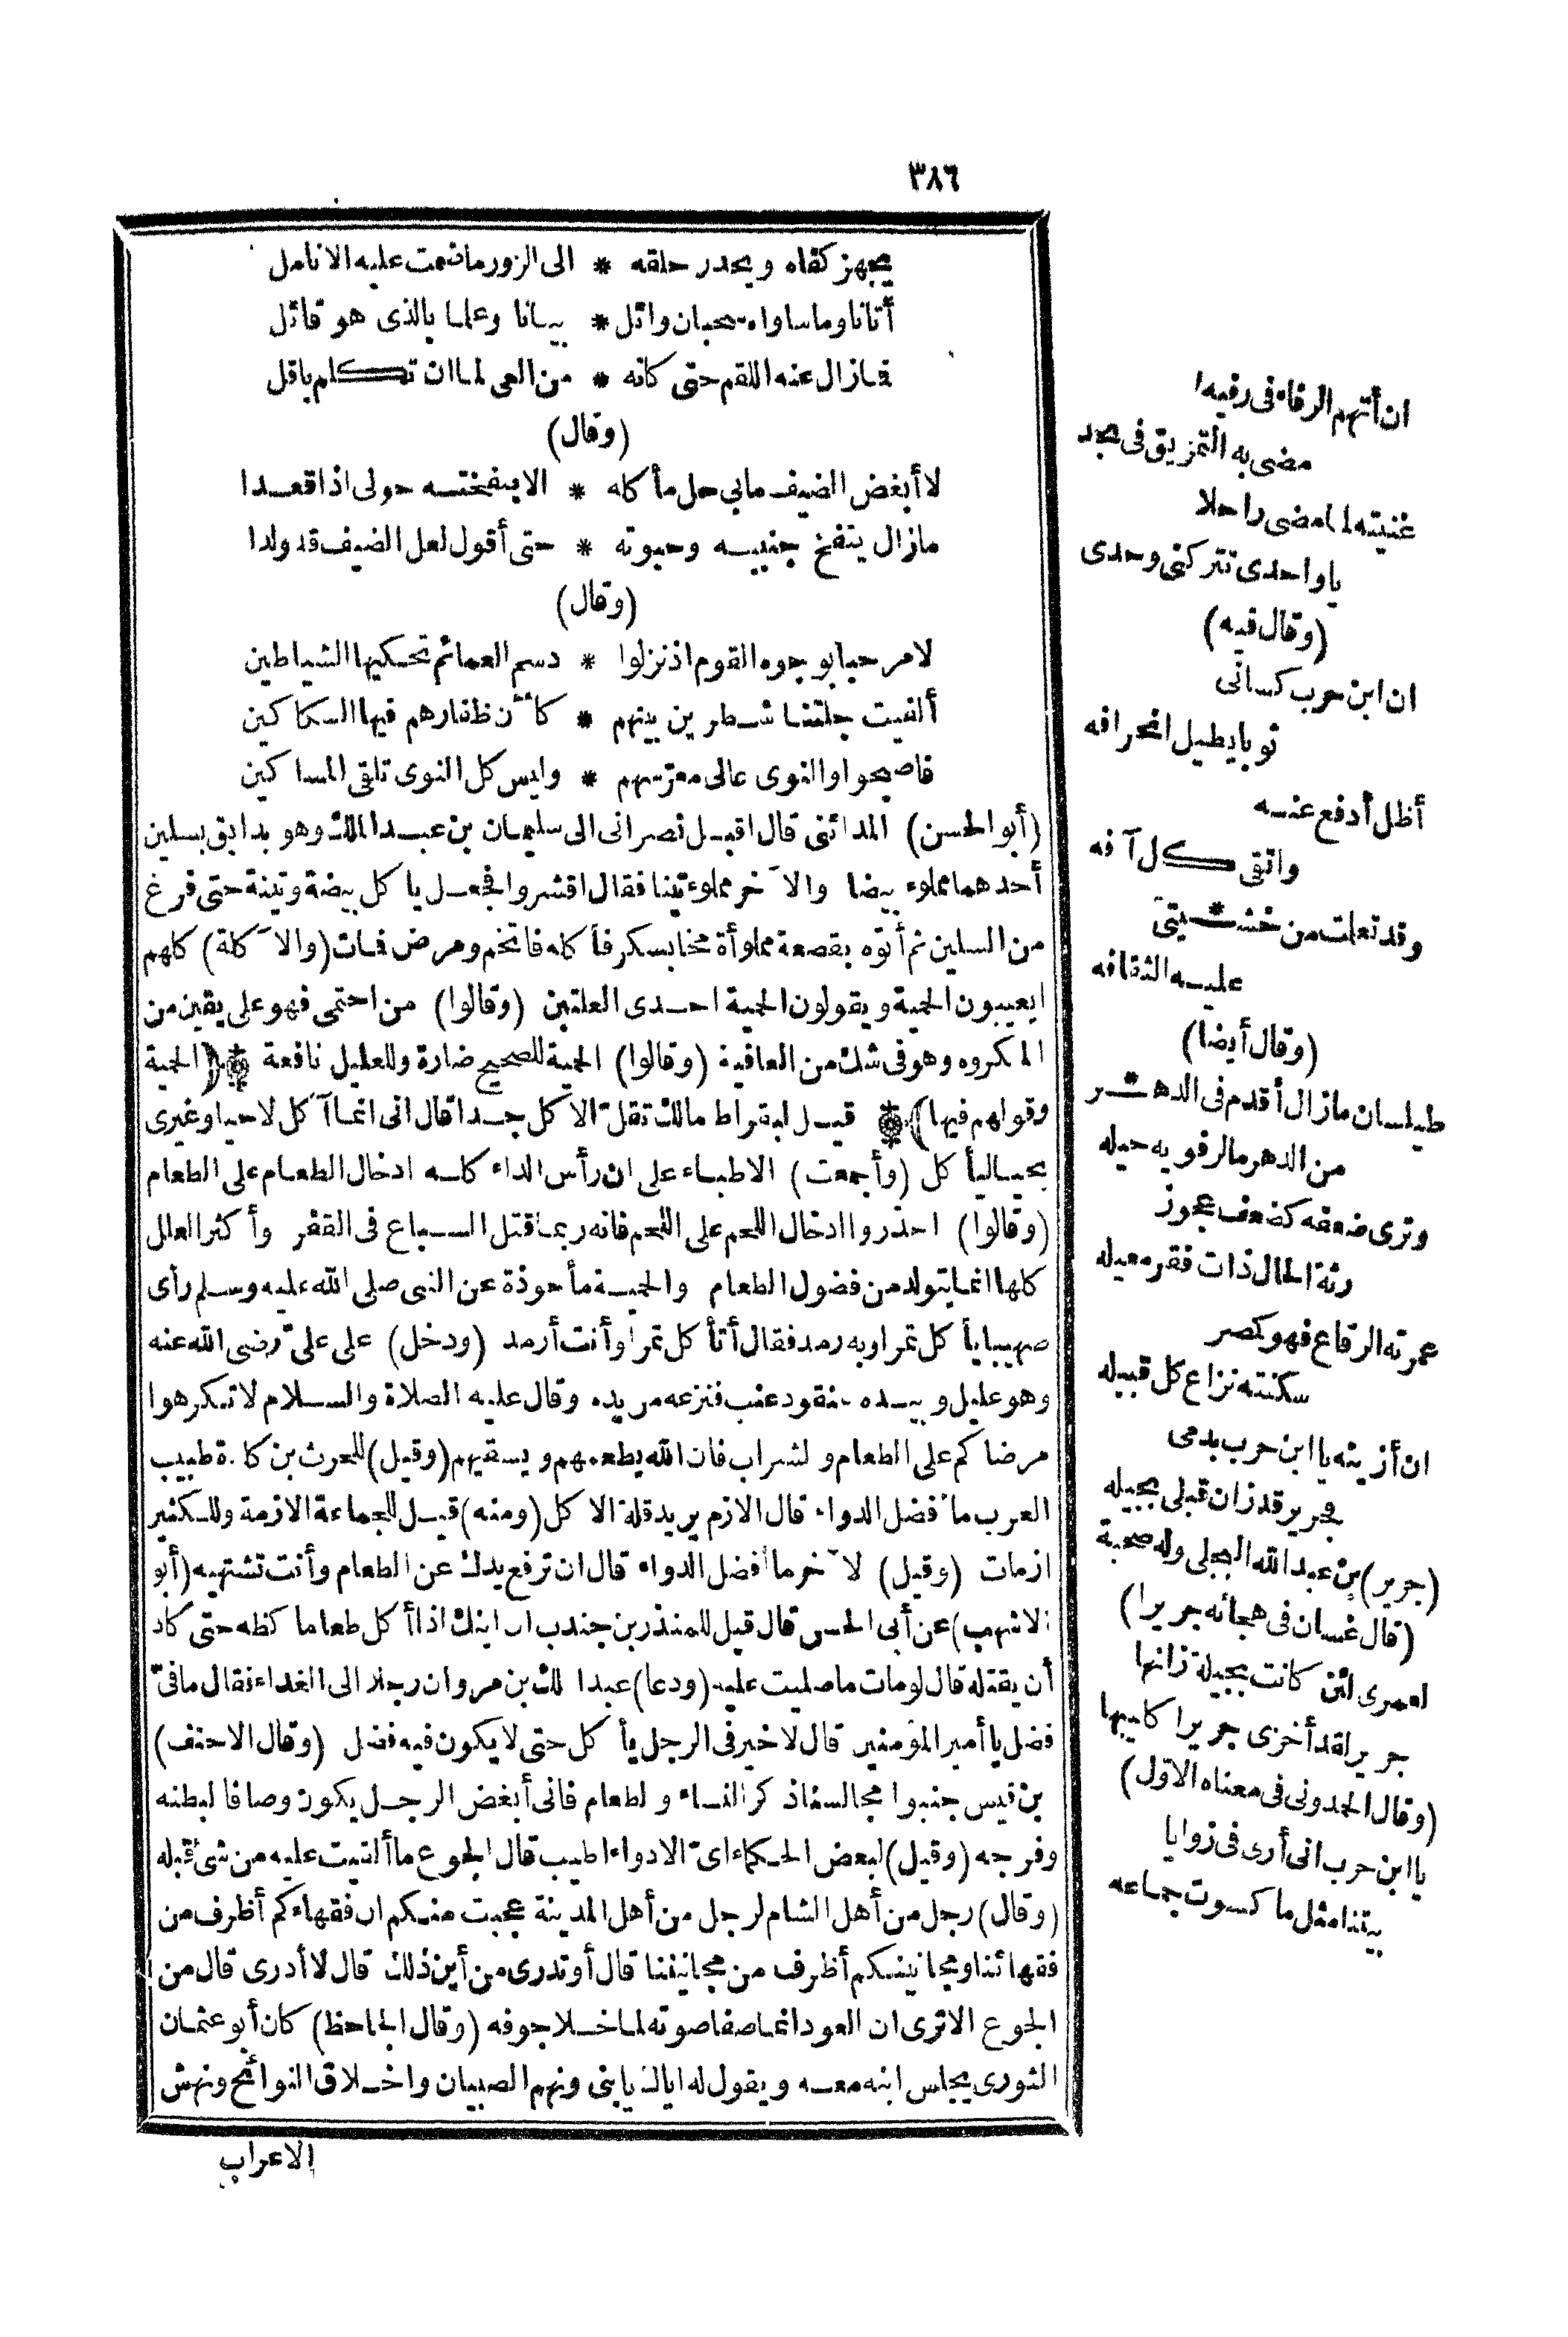 ٣٨٦
يجهز كفاه ويحدر حلقه * الى الزور ما ضمت عليه الانامل
أتانا وما ساواه سحبان وائل * بيانا وعلما بالذى هو قائل
فما زال عنه اللقم حتى كانه * من العى لما ان تكلم باقل
(وقال)
لا أبغض الضيف ما بى حل مأكله * الا ينفخته حولى اذا قعدا
مازال ينفخ جنبيه وحبوته * حتى أقول لعل الضيف قد ولدا
(وقال)
لا مرحبا بوجوه القوم اذ نزلوا * دسم العمائم تحكيها الشياطين
ألفيت جلتنا شطرين بينهم * كأن ظفارهم فيها السكاكين
فاصبحوا والنوى عالى معرّسهم * وليس كل النوى تلقى المساكين
(أبو الحسن) المدائنى قال اقبل نصرانى الى سليمان بن عبد الملك وهو بدابق بسلين
أحدهما مملوء بيضا والآخر مملوء تينا فقال اقشروا فجعل يا كل بيضة وتينة حتى فرغ
من السلين ثم أتوه بقصعة مملوأة مخا بسكر فأكله فاتخم ومرض فمات (والآكلة) كلهم
يعيبون الحمية ويقولون الحمية احدى العلتين (وقالوا) من احتمى فهو على يقين من
المكروه وهو فى شك من العافية (وقالوا) الحمية للصحيح ضارة وللعليل نافعة ❊(الحمية
وقولهم فيها)❊ قيل لبقراط مالك تقلّ الاكل جدا قال انى انما آكل لاحيا وغيرى
يحيا ليأكل (وأجمعت) الاطباء على ان رأس الداء كله ادخال الطعام على الطعام
(وقالوا) احذروا ادخال اللحم على اللحم فانه ربما قتل السباع فى القفر وأكثر العلل
كلها انما يتولد من فضول الطعام والحمية مأخوذة عن النبى صلى الله عليه وسلم رأى
صهيبا يأكل تمرا وبه رمد فقال أتأكل تمرا وأنت أرمد (ودخل) على علىّ رضى الله عنه
وهو عليل وبيده عنقود عنب فنزعه من يده وقال عليه الصلاة والسلام لا تكرهوا
مرضاكم على الطعام والشراب فان الله يطعمهم ويسقيهم (وقيل) للحرث بن كلدة طبيب
العرب ما أفضل الدواء قال الازم يريد قلة الاكل (ومنه) قيل للجماعة الازمة وللكثير
ازمات (وقيل) لآخر ما أفضل الدواء قال ان ترفع يدك عن الطعام وأنت تشتهيه (أبو
الاشهب) عن أبى الحسن قال قيل للمنذر بن جندب ان ابنك اذا أكل طعاما كظه حتى كاد
أن يقتله قال لو مات ما صليت عليه (ودعا) عبد الملك بن مروان رجلا الى الغداء فقال ما فىّ
فضل يا أمير المؤمنين قال لا خير فى الرجل يأكل حتى لا يكون فيه فضل (وقال الاحنف)
بن قيس جنبوا مجالسنا ذكر النساء والطعام فانى أبغض الرجل يكون وصافا لبطنه
وفرجه (وقيل) لبعض الحكماء اىّ الادواء اطيب قال الجوع ما ألقيت عليه من شئ قبله
(وقال) رجل من أهل الشام لرجل من أهل المدينة عجبت منكم ان فقهاءكم أظرف من
فقهائنا ومجانينكم أظرف من مجانيننا قال أوتدرى من أين ذلك قال لا أدرى قال من
الجوع الا ترى ان العود انما صفا صوته لما خلا جوفه (وقال الجاحظ) كان أبو عثمان
الثورى يجلس ابنه معه ويقول له اياك يا بنى ونهم الصبيان واخلاق النوائح ونهش
الاعراب
ان أتهم الرفاء فى رفيها
مضى به التمزيق فى نجد
غنيته لما مضى راحلا
يا واحدى تتركنى وحدى
(وقال فيه)
ان ابن حرب كسانى
ثوبا يطيل انحرافه
أظل أدفع عنه
واتقى كل آفه
وقد تعلمت من خشيتى
عليه الثقافه
(وقال أيضا)
طيلسان مازال أقدم فى الدهر
من الدهر ما لرفويه حيله
وترى ضعفه كضعف عجوز
رثة الحال ذات فقر معيله
عمرته الرقاع فهو كمصر
سكنته نزاع كل قبيله
ان أزينه يا ابن حرب بدمى
فجرير قد زان قبلى بجيله
(جرير) بن عبد الله البجلى وله صحبة
(قال غسان فى هجائه جريرا)
لعمرى لئن كانت بجيلة زانها
جرير لقد أخزى جريرا كليبها
(وقال الحمدونى فى معناه الاوّل)
يا ابن حرب انى أرى فى زوايا
بيتنا مثل ما كسوت جماعه